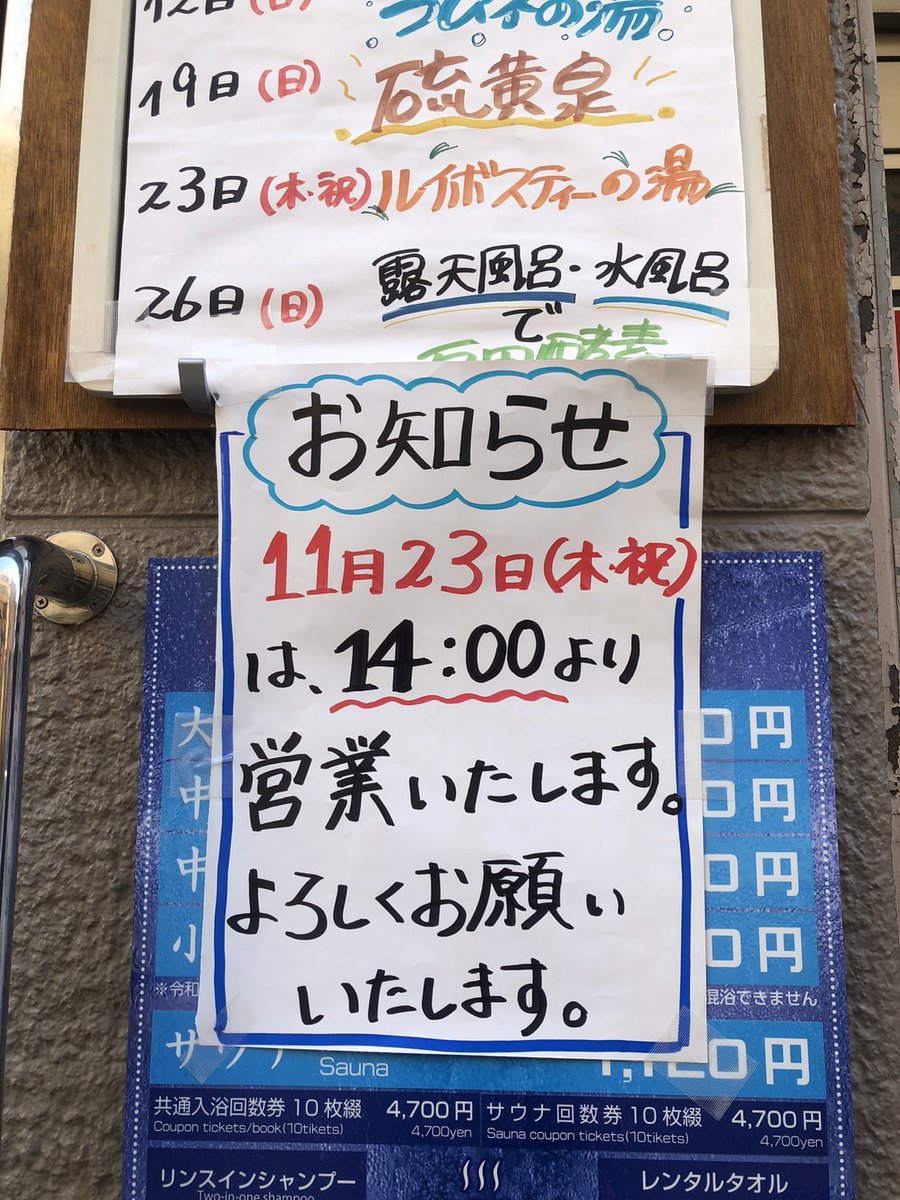 12日(日)
の湯
19日(日) 硫黄泉
23日(木・祝) ルイボスティーの湯
26日(日) 露天風呂・水風呂
で
酵素
お知らせ
11月23日(木・祝)
は、14:00より
営業いたします。
よろしくお願い
いたします。
大 0円
中 0円
中 0円
小 0円
※令和
混浴できません
サウナ
Sauna
1,120円
共通入浴回数券10枚綴 4,700円
Coupon tickets/book(10tikets) 4,700yen
サウナ回数券10枚綴 4,700円
Sauna coupon tickets(10tikets) 4,700yen
リンスインシャンプー
Two-in-one shampoo
レンタルタオル